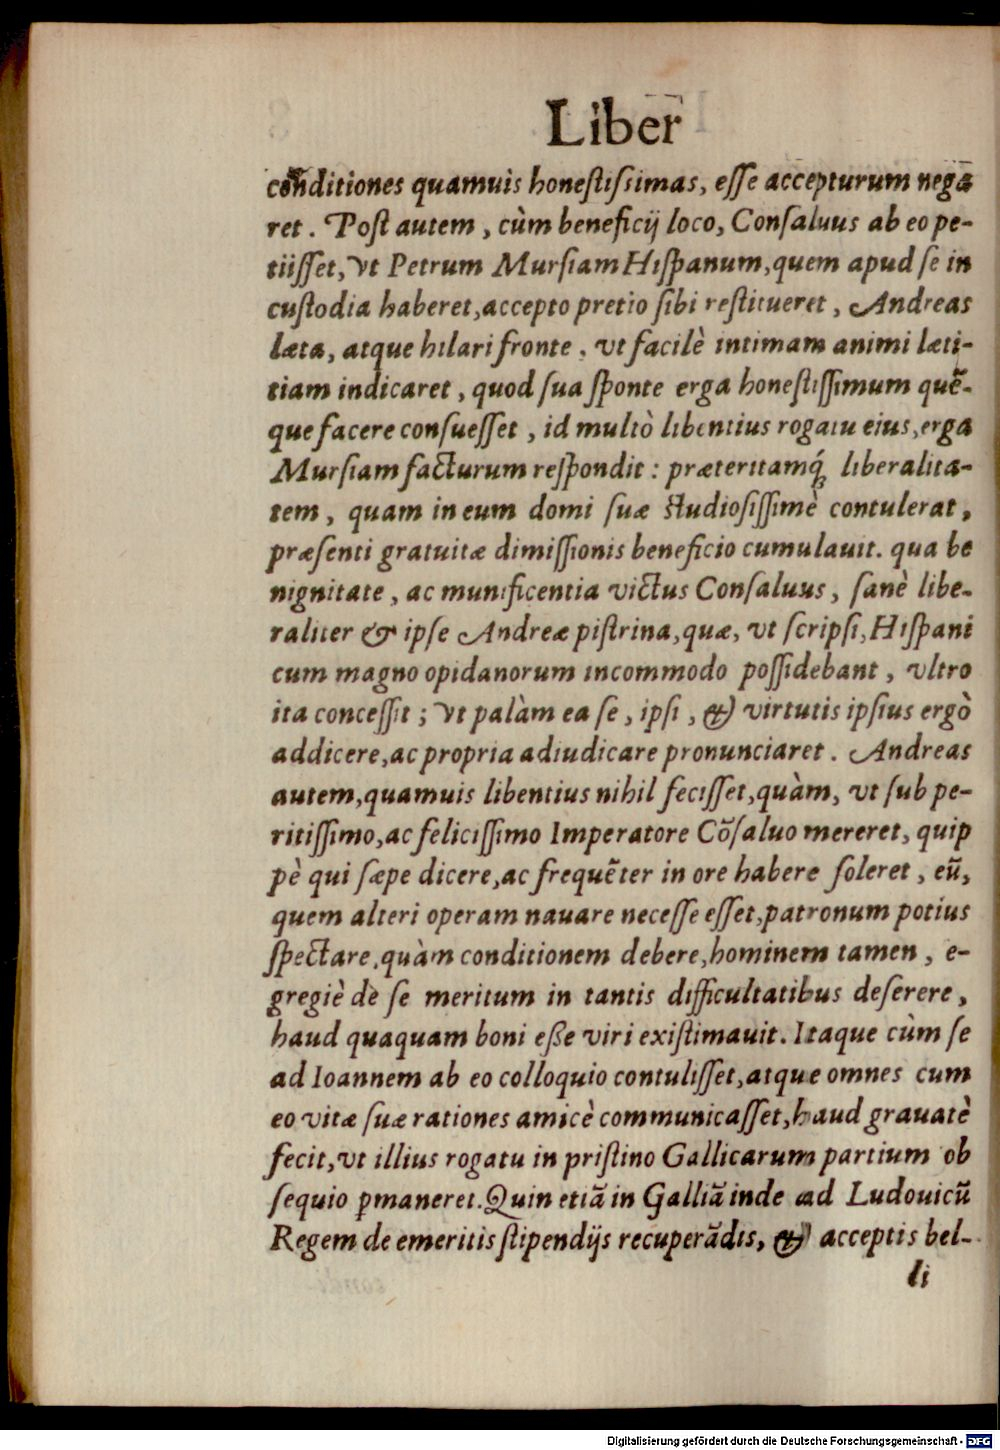 Liber
conditiones quamuis honestissimas, esse accepturum nega
ret. Post autem, cùm beneficij loco, Consaluus ab eo pe-
tiisset, vt Petrum Mursiam Hispanum, quem apud se in
custodia haberet, accepto pretio sibi restitueret, Andreas
læta, atque hilari fronte, vt facilè intimam animi læti-
tiam indicaret, quod sua sponte erga honestissimum quē-
que facere consuesset, id multò libentius rogatu eius, erga
Mursiam facturum respondit: præteritamq́; liberalita-
tem, quam in eum domi suæ studiosissimè contulerat,
præsenti gratuitæ dimissionis beneficio cumulauit. qua be
nignitate, ac munificentia victus Consaluus, sanè libe-
raliter & ipse Andreæ pistrina, quæ, vt scripsi, Hispani
cum magno opidanorum incommodo possidebant, vltro
ita concessit; vt palàm ea se, ipsi, & virtutis ipsius ergò
addicere, ac propria adiudicare pronunciaret. Andreas
autem, quamuis libentius nihil fecisset, quàm, vt sub pe-
ritissimo, ac felicissimo Imperatore Cōsaluo mereret, quip
pè qui sæpe dicere, ac frequēter in ore habere soleret, eū,
quem alteri operam nauare necesse esset, patronum potius
spectare, quàm conditionem debere, hominem tamen, e-
gregiè de se meritum in tantis difficultatibus deserere,
haud quaquam boni eße viri existimauit. Itaque cùm se
ad Ioannem ab eo colloquio contulisset, atque omnes cum
eo vitæ suæ rationes amicè communicasset, haud grauatè
fecit, vt illius rogatu in pristino Gallicarum partium ob
sequio ꝑmaneret. Quin etiā in Galliā inde ad Ludouicū
Regem de emeritis stipendijs recuperādis, & acceptis bel-
li
Digitalisierung gefördert durch die Deutsche Forschungsgemeinschaft - DFG